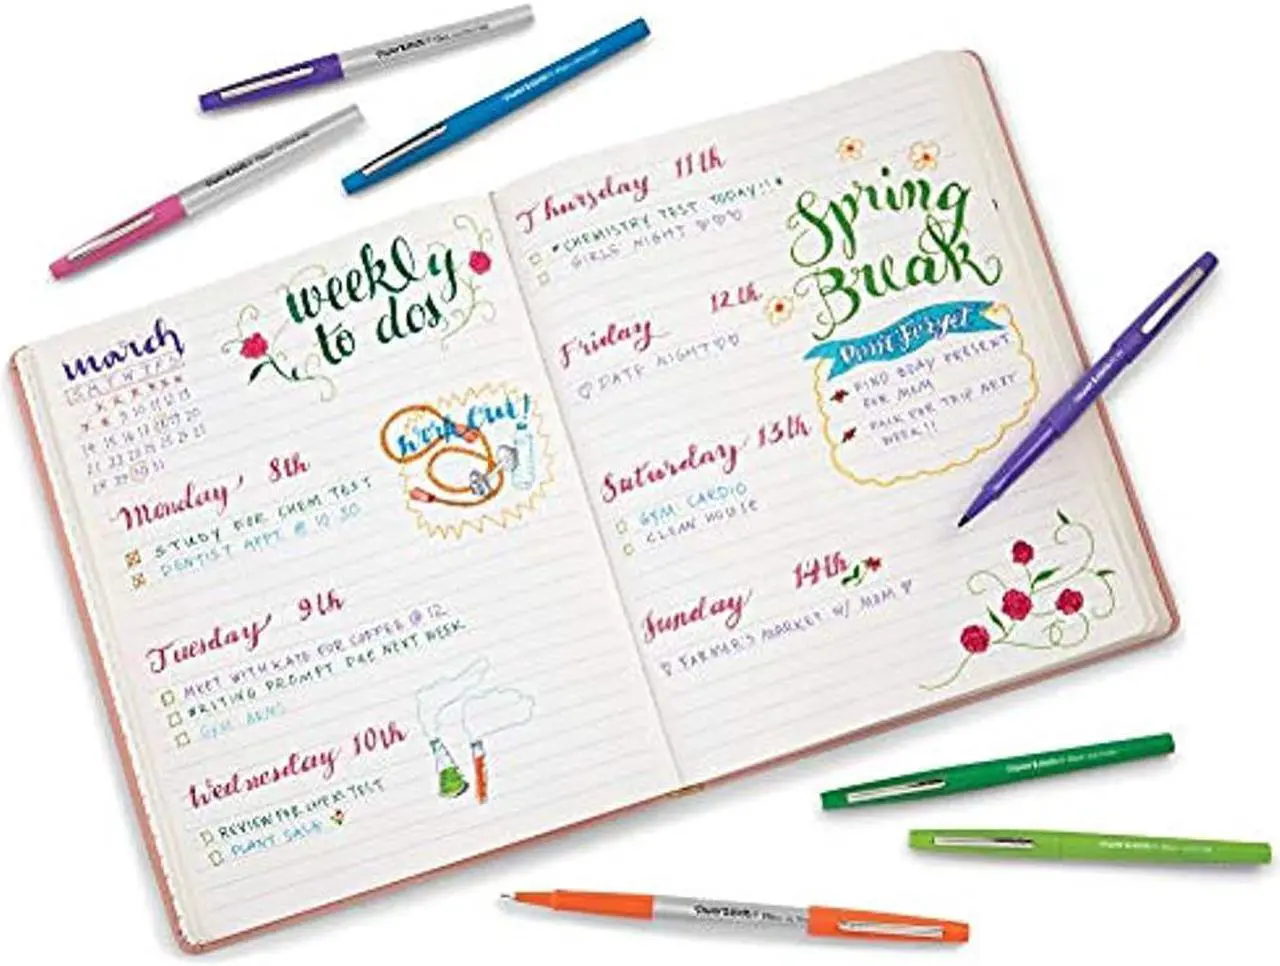 weekly
to dos
march
S M T W T F S
14 15 16 17 18 19 20
21 22 23 24 25 26 27
28 29 30 31
Monday 8th
STUDY FOR CHEM TEST
DENTIST APPT @ 10:30
work out!
Tuesday 9th
MEET WITH KATE FOR COFFEE @ 12
WRITING PROMPT DUE NEXT WEEK
GYM ARMS
Wednesday 10th
REVIEW FOR CHEM TEST
PLANT SALE
Thursday 11th
*CHEMISTRY TEST TODAY!!*
GIRLS NIGHT ♡♡♡
Friday 12th
♡ DATE NIGHT ♡♡
Saturday 13th
GYM CARDIO
CLEAN HOUSE
Sunday 14th
♡ FARMER'S MARKET W/ MOM ♡
Spring
Break
Don't Forget
FIND BDAY PRESENT
FOR MOM
PACK FOR TRIP NEXT
WEEK!!
Paper Mate
Paper Mate
Paper Mate
Paper Mate
Paper Mate
Paper Mate
Paper Mate